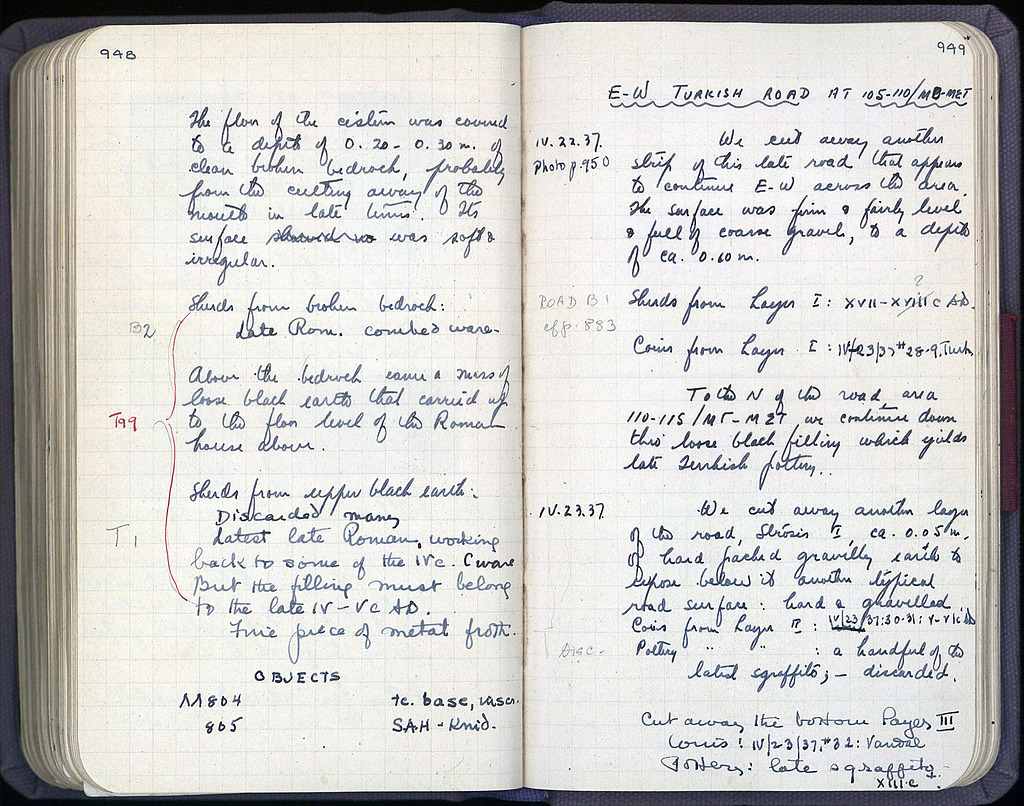 948
The floor of the cistern was covered
to a depth of 0.20 - 0.30 m. of
clean broken bedrock, probably
from the cutting away of the
mouth in late times. Its
surface showed no was soft &
irregular.
Sherds from broken bedrock:
B2
Late Rom. combed ware-
Above the bedrock came a mass of
loose black earth that carried up
T99
to the floor level of the Roman
house above.
Sherds from upper black earth:
Discarded many
T1
Latest late Roman, working
back to some of the IVc. C ware
But the filling must belong
to the late IV - V c AD.
Fine piece of metal froth.
OBJECTS
M804 tc. base, inscr.
805 SAH - Knid.
949
E-W TURKISH ROAD AT 105-110/MB-MET
IV.22.37. We cut away another
Photo p. 950 strip of this late road that appears
to continue E-W across the area.
The surface was firm & fairly level
& full of coarse gravel, to a depth
of ca. 0.60 m.
?
ROAD B1 Sherds from Layer I: XVII-XVIII c AD.
cf p. 883
Coins from Layer I: IV/23/37 #28-9, Turk.
To the N of the road, area
110-115/MT-MET we continue down
thro' loose black filling which yields
late Turkish pottery.
IV.23.37. We cut away another layer
of the road, Strosis I, ca. 0.05 m.
of hard packed gravelly earth to
expose below it another typical
road surface: hard & gravelled.
Coins from Layer II: IV/23/37:30-31: V-VI c AD
Disc- Pottery " " : a handful of the
latest sgraffito; - discarded.
Cut away the bottom Layer III
Coins: IV/23/37,#32: Vandal
Pottery: late sgraffito
XIII c